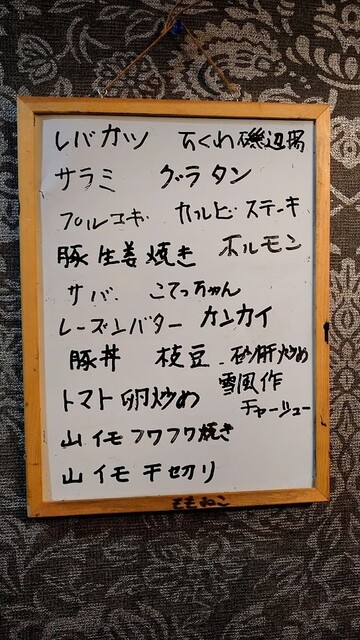 レバカツ ちくわ磯辺揚
サラミ グラタン
プルコギ カルビステーキ
豚生姜焼き ホルモン
サバ こてっちゃん
レーズンバター カンカイ
豚丼 枝豆 砂肝炒め
トマト卵炒め 雪風作
チャーシュー
山イモフワフワ焼き
山イモ千切り
ももねこ